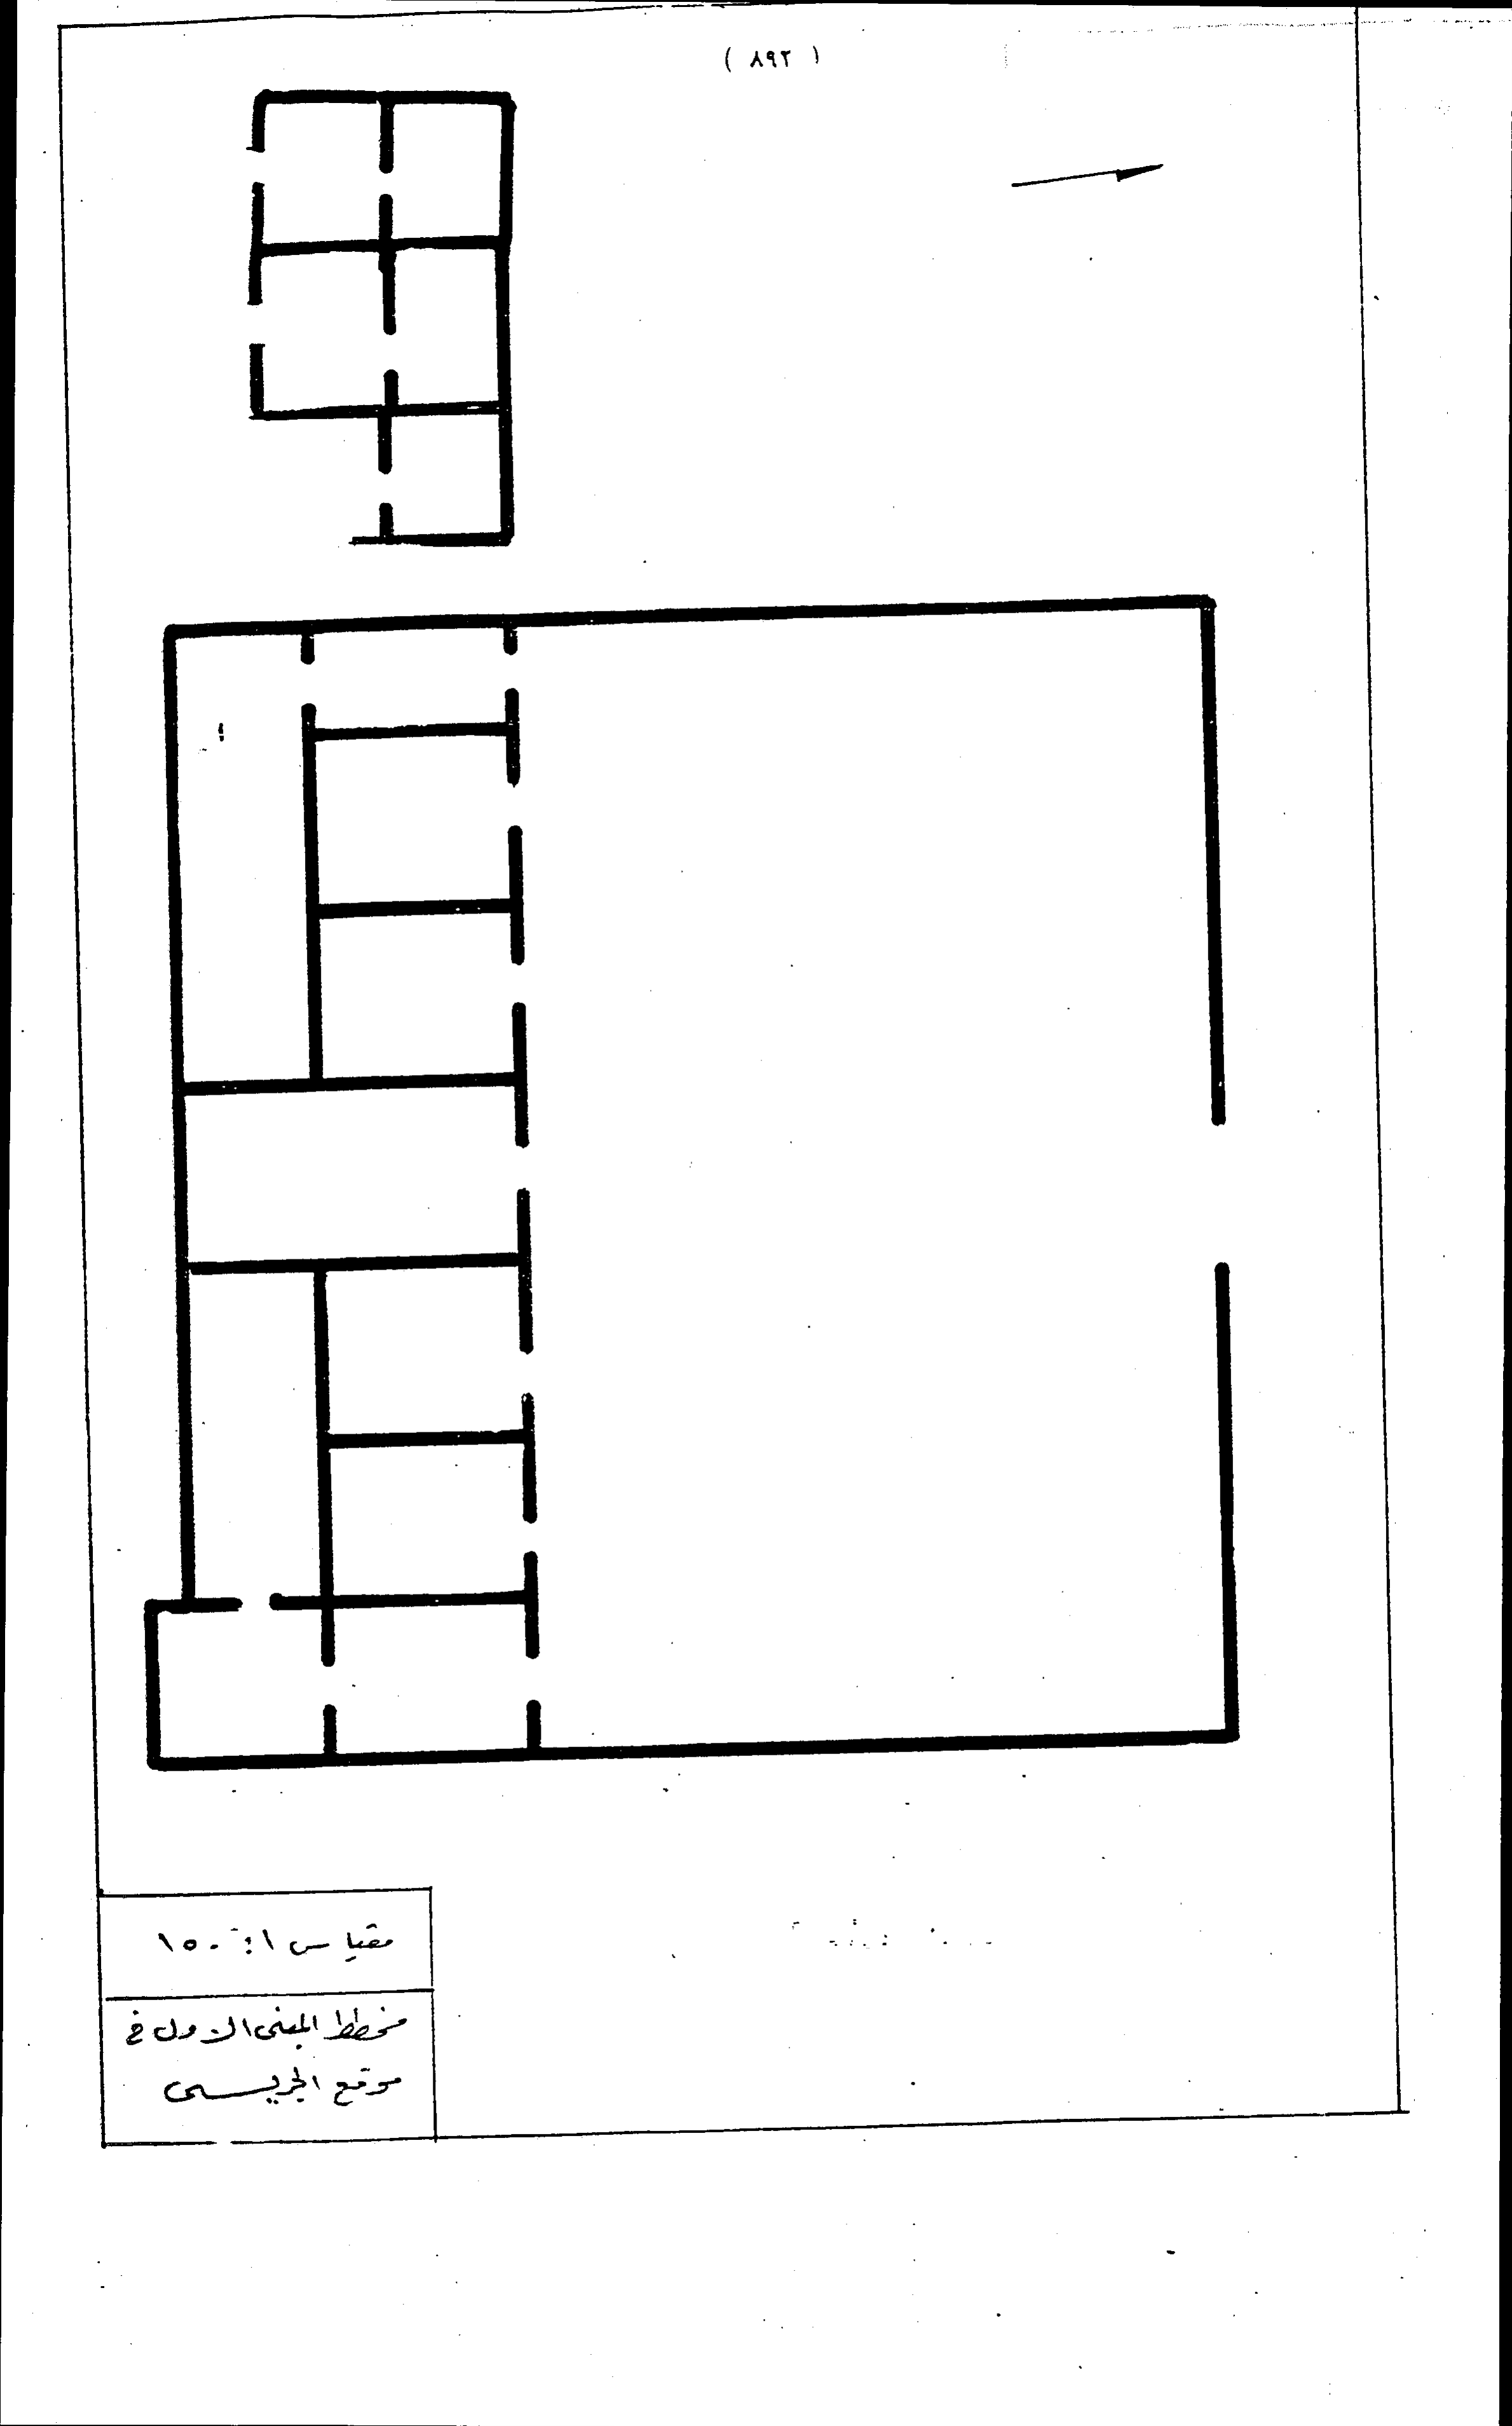 ( ٨٩٢ )
مقياس ١ : ١٥٠
مخطط المبنى الاول في
موقع الجريسي